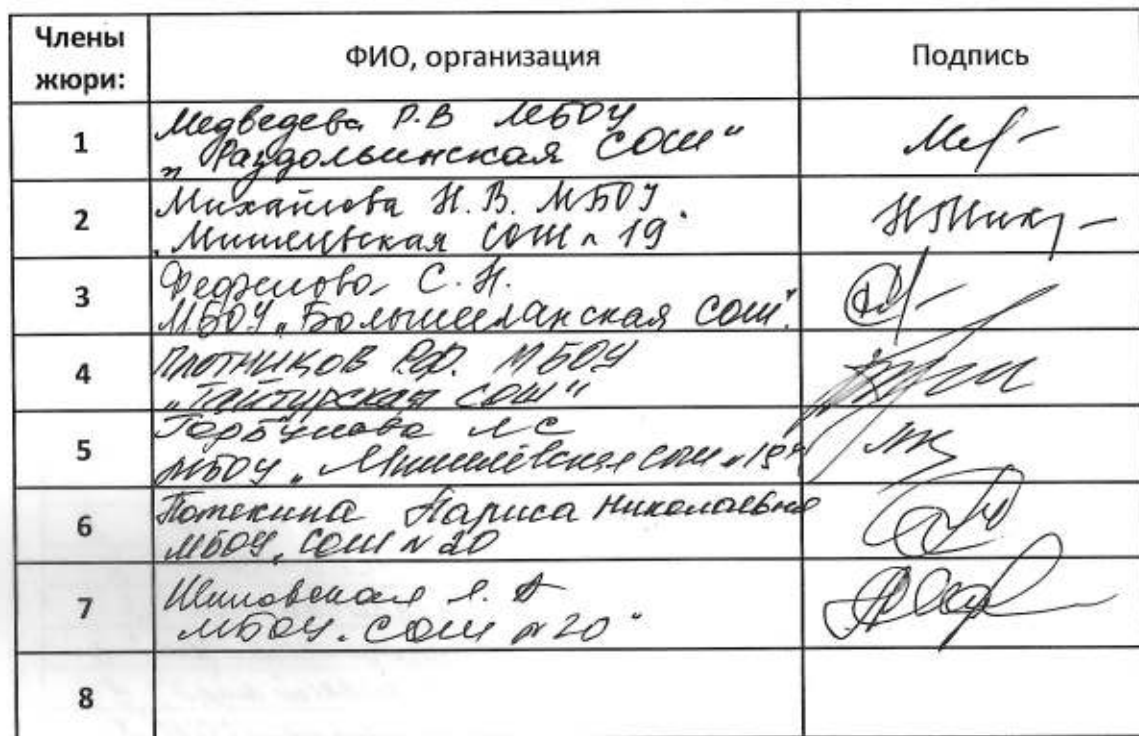 Члены жюри:
ФИО, организация
Подпись
1
Медведева Р.В МБОУ
"Раздольинская СОШ"
2
Михайлова Н.В. МБОУ
"Мишелевская СОШ n 19"
3
Федяева С.Н.
МБОУ "Большееланская СОШ".
4
Плотников Р.Ф. МБОУ
"Тайтурская СОШ"
5
Горбунова ЛС
МБОУ "Мишелёвская СОШ n 19"
6
Потекина Лариса Николаевна
МБОУ "СОШ N 20
7
МБОУ "СОШ N 20"
8